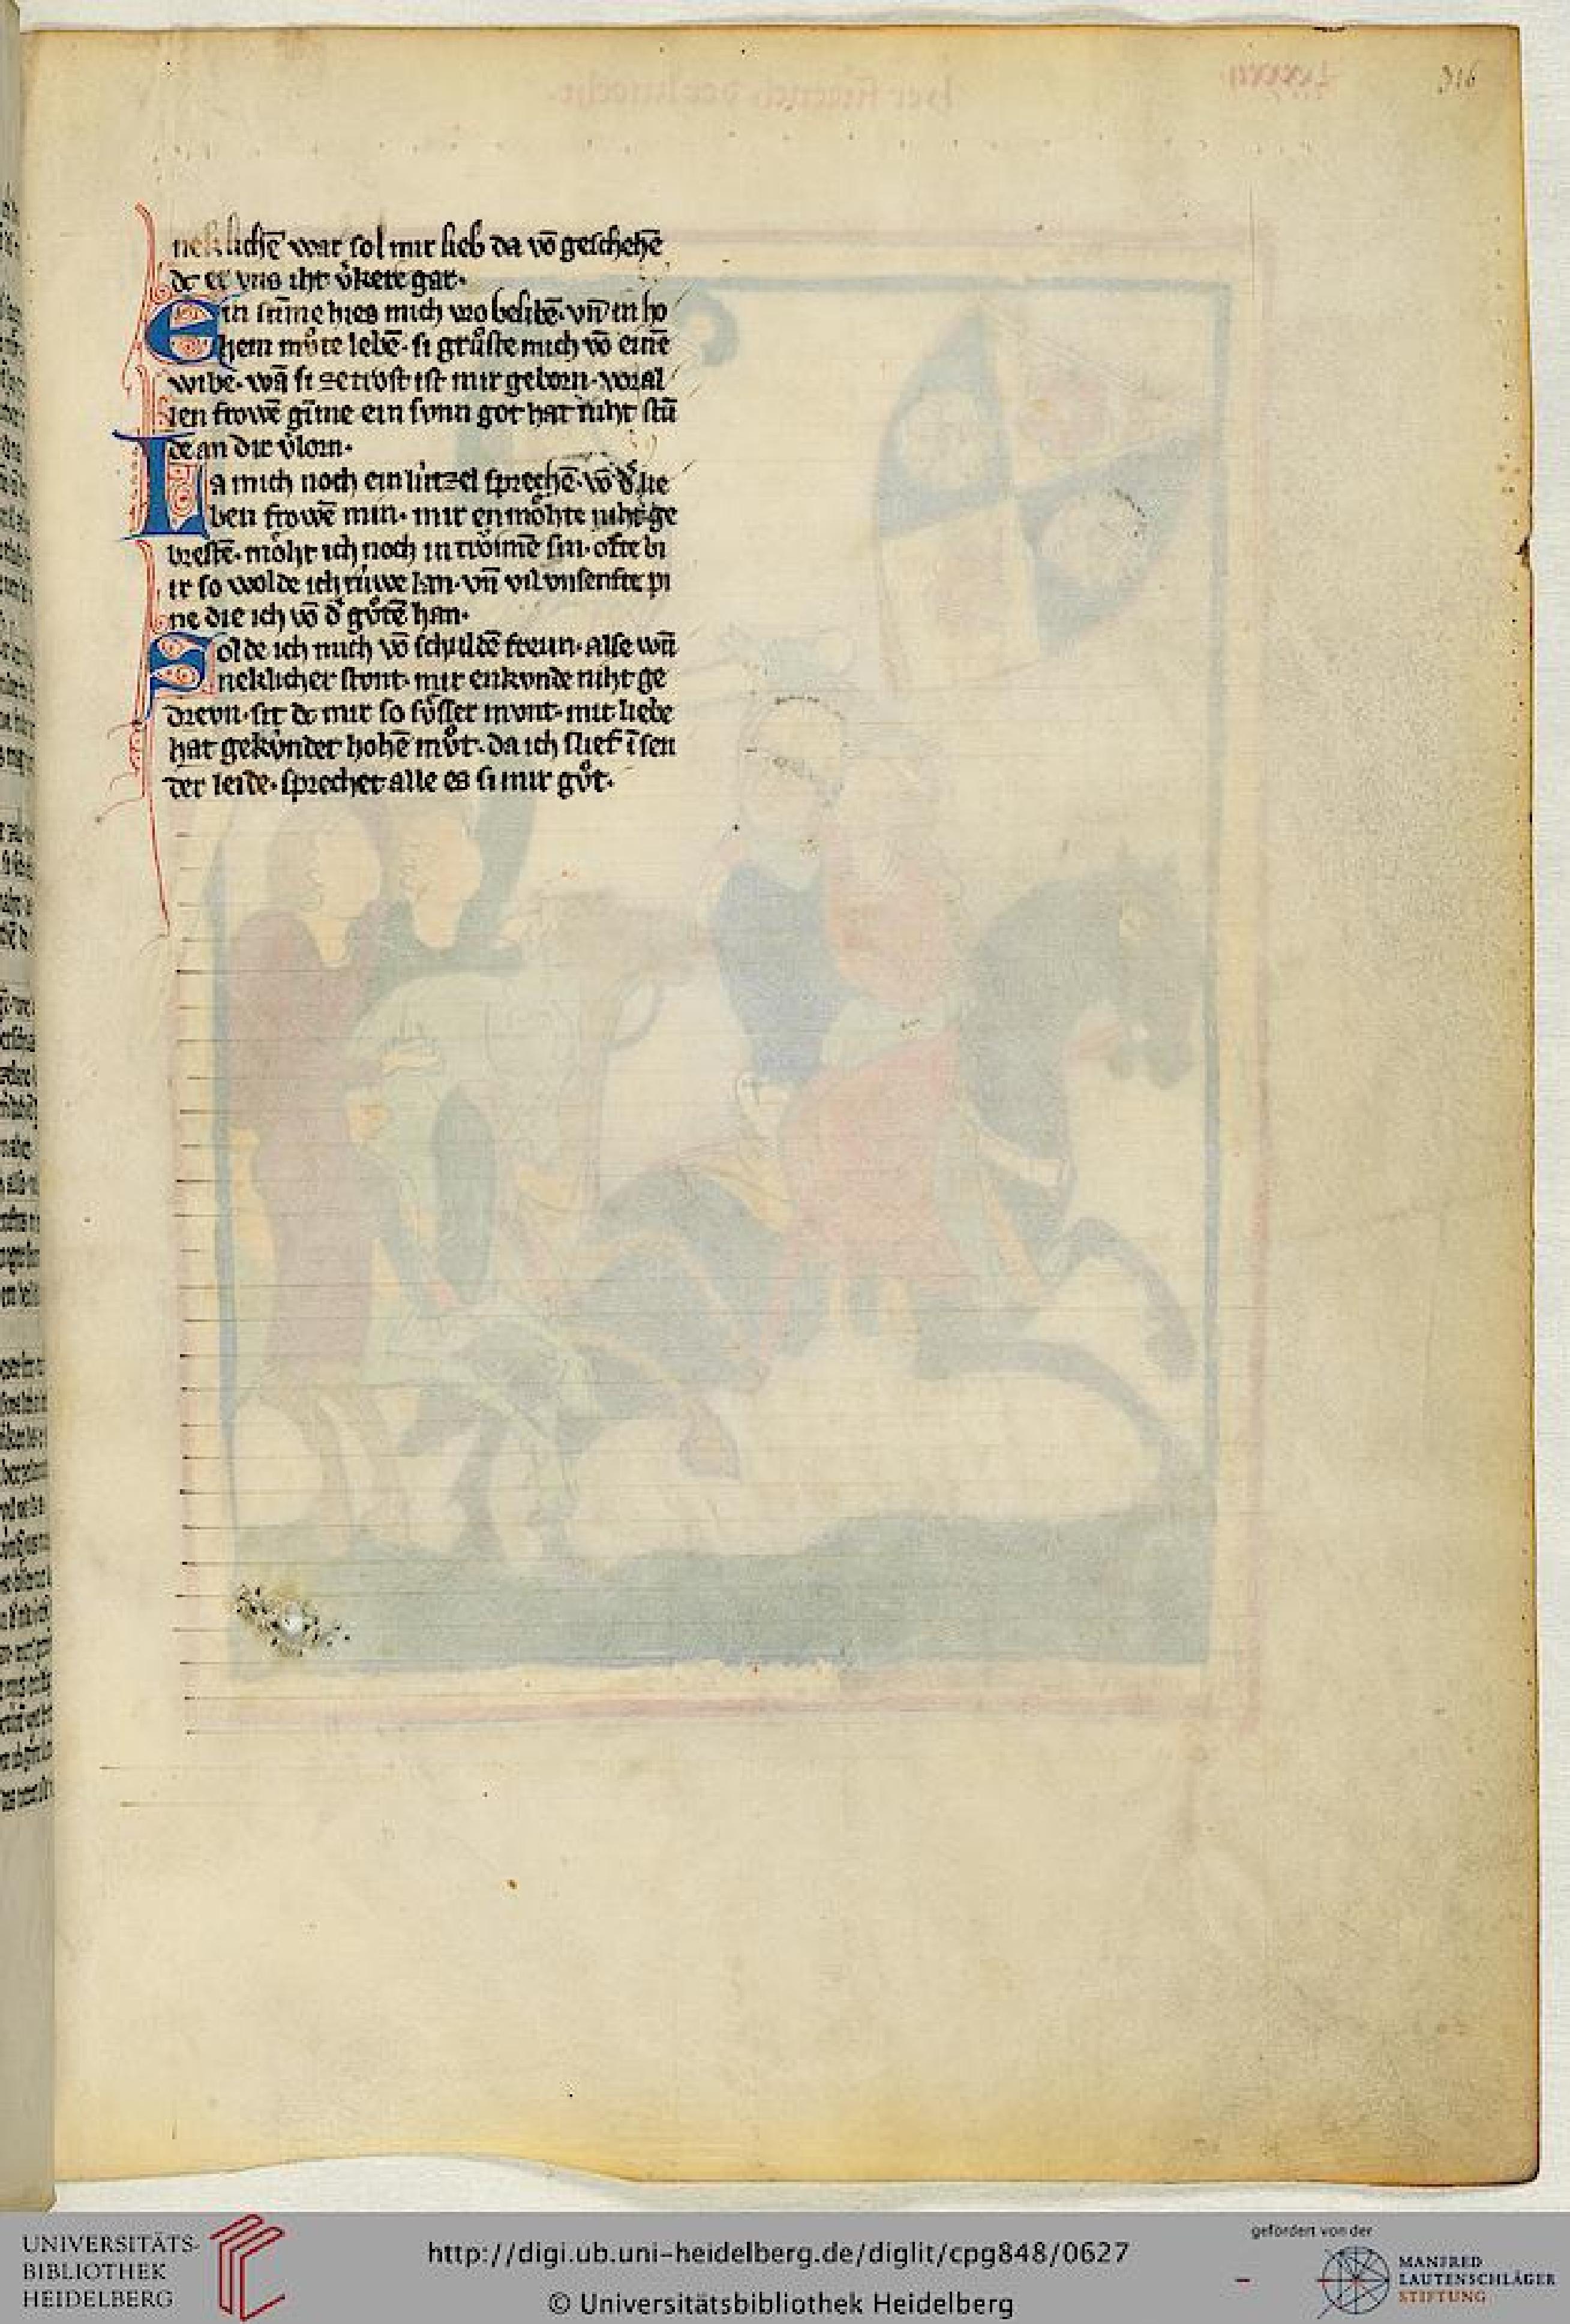 316
neklichē war sol mir lieb da vō geschehē
dc er vns iht v̓kere gar·
Ein stīme hies mich vro belibē· vn̄ in ho
hem mv̊te lebē· si grůste mich vō eine͞
wibe· wā si ze trost ist mir geborn· vor al
len frowē gīme ein svnn got hat niht stū
de an dir v̓lorn·
La mich noch ein lu̍tzel sprechē· vō d̓ lie
ben frowē min· mir en mo̍hte niht ge
brestē· mo̍ht ich noch in tro̍imē sin· ofte bi
ir so wolde ich ru̍we lan· vn̄ vil vnsenfte pi
ne die ich vō d̓ gv̊tē han·
Solde ich mich vō schuldē freun· alse wū
neklicher stvnt· mir enkvnde niht ge
drevn· sit dc mir so sv̊sser mvnt· mit liebe
hat gekv̍ndet hohē mv̊t· da ich slief ī sen
der leide· sprechet alle es si mir gv̊t·
UNIVERSITÄTS-
BIBLIOTHEK
HEIDELBERG
http://digi.ub.uni-heidelberg.de/diglit/cpg848/0627
© Universitätsbibliothek Heidelberg
gefördert von der
MANFRED
LAUTENSCHLÄGER
STIFTUNG